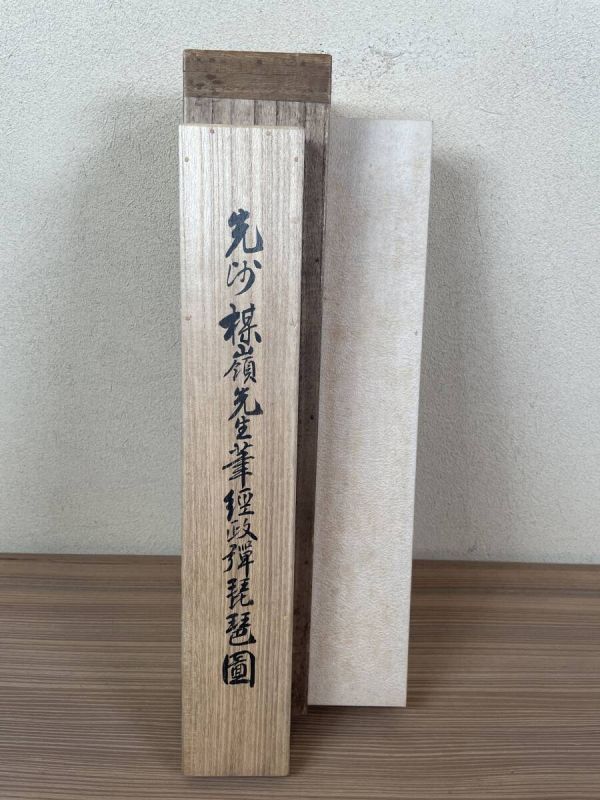 先師楳嶺先生筆經政彈琵琶圖